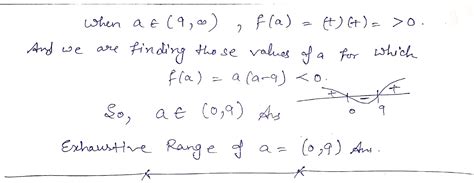 when a ∈ (9,∞) , f(a) = (+)(+) = >0.
And we are finding those values of a for which
f(a) = a(a-9) <0.
+ - +
0 9
So, a ∈ (0,9) Ans
Exhaustive Range of a = (0,9) Ans.